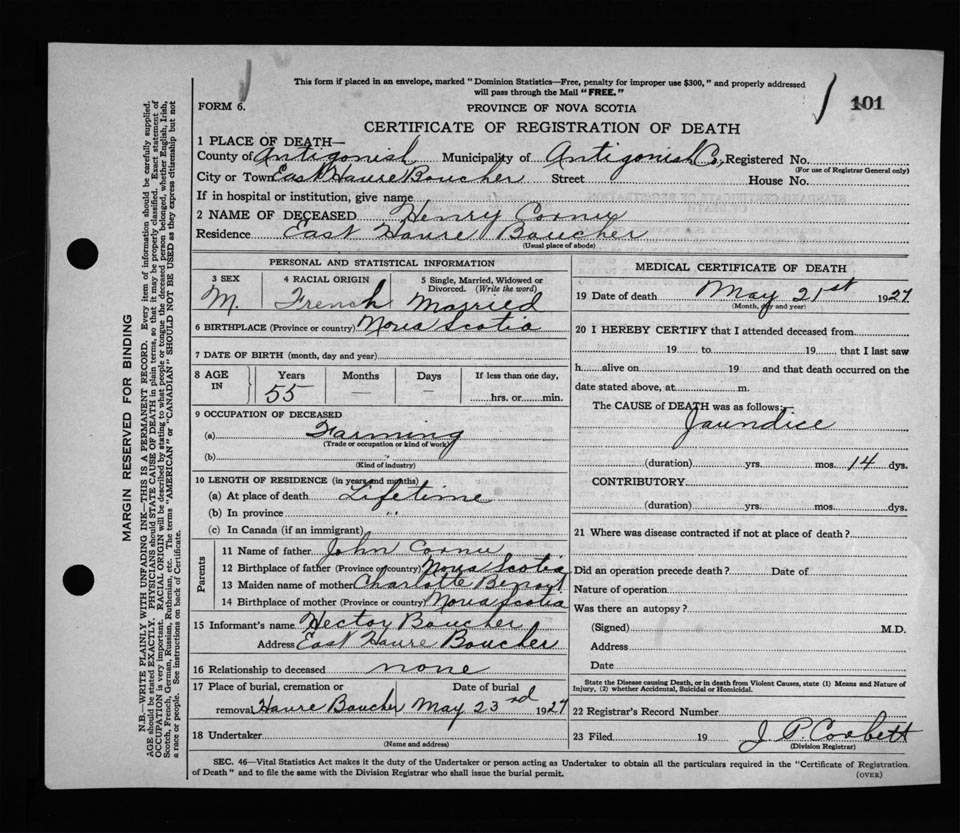 This form if placed in an envelope, marked "Dominion Statistics—Free, penalty for improper use $300," and properly addressed
will pass through the Mail "FREE."
FORM 6.
PROVINCE OF NOVA SCOTIA
101
CERTIFICATE OF REGISTRATION OF DEATH
1 PLACE OF DEATH—
County of Antigonish Municipality of Antigonish Co. Registered No.
(For use of Registrar General only)
City or Town East Havre Boucher Street House No.
If in hospital or institution, give name
2 NAME OF DECEASED Henry
Residence East Havre Boucher
(Usual place of abode)
PERSONAL AND STATISTICAL INFORMATION
3 SEX 4 RACIAL ORIGIN 5 Single, Married, Widowed or
Divorced. (Write the word)
M. French Married
6 BIRTHPLACE (Province or country) Nova Scotia
7 DATE OF BIRTH (month, day and year)
8 AGE IN Years Months Days If less than one day,
55 — — hrs. or min.
9 OCCUPATION OF DECEASED
(a) Farming
(Trade or occupation or kind of work)
(b)
(Kind of industry)
10 LENGTH OF RESIDENCE (in years and months)
(a) At place of death Lifetime
(b) In province "
(c) In Canada (if an immigrant)
Parents
11 Name of father John
12 Birthplace of father (Province or country) Nova Scotia
13 Maiden name of mother Charlotte Benoyt
14 Birthplace of mother (Province or country) Nova Scotia
15 Informant's name Hector Boucher
Address East Havre Boucher
16 Relationship to deceased none
17 Place of burial, cremation or Date of burial
removal Havre Boucher May 23rd 1927
18 Undertaker
(Name and address)
MEDICAL CERTIFICATE OF DEATH
19 Date of death May 21st 1927
(Month, day and year)
20 I HEREBY CERTIFY that I attended deceased from
19 to 19 that I last saw
h alive on 19 and that death occurred on the
date stated above, at m.
The CAUSE of DEATH was as follows:—
Jaundice
(duration) yrs. mos. 14 dys.
CONTRIBUTORY
(duration) yrs. mos. dys.
21 Where was disease contracted if not at place of death?
Did an operation precede death? Date of
Nature of operation
Was there an autopsy?
(Signed) M.D.
Address
Date
State the Disease causing Death, or in death from Violent Causes, state (1) Means and Nature of
Injury, (2) whether Accidental, Suicidal or Homicidal.
22 Registrar's Record Number
23 Filed 19 J. P. Corbett
(Division Registrar)
SEC. 46—Vital Statistics Act makes it the duty of the Undertaker or person acting as Undertaker to obtain all the particulars required in the "Certificate of Registration
of Death" and to file the same with the Division Registrar who shall issue the burial permit.
(OVER)
MARGIN RESERVED FOR BINDING
N.B.—WRITE PLAINLY WITH UNFADING INK—THIS IS A PERMANENT RECORD. Every item of information should be carefully supplied.
AGE should be stated EXACTLY. PHYSICIANS should STATE CAUSE OF DEATH in plain terms, so that it may be properly classified. Exact statement of
OCCUPATION is very important. RACIAL ORIGIN will be described by stating to what people or tongue the deceased person belonged, whether English, Irish,
Scotch, French, German, Russian, Ruthenian, etc. The terms "AMERICAN" or "CANADIAN" SHOULD NOT BE USED as they express citizenship but not
a race or people. See instructions on back of Certificate.